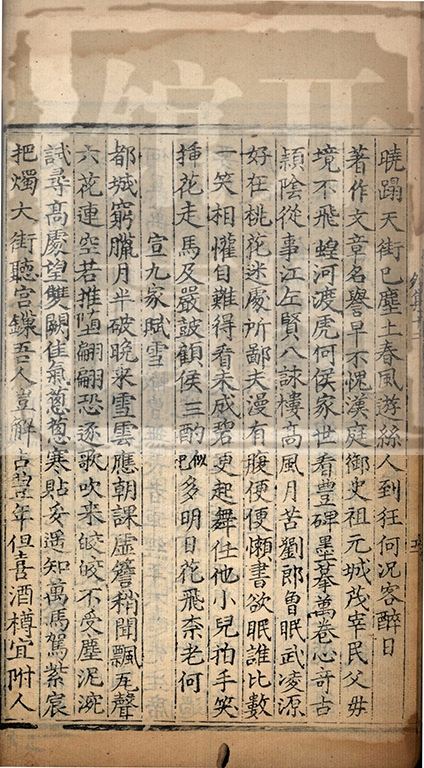 曉蹋天街已塵土春風遊絲人到狂何況客醉日
著作文章名譽早不愧漢庭御史祖元城茂宰民父母
境不飛蝗河渡虎何侯家世看豐碑墨摹萬卷心奇古
潁陰從事江左賢八詠樓高風月苦劉郎曾眠武凌源
好在桃花迷處所鄙夫漫有腹便便懶書欲眠誰比數
一笑相懽自難得看朱成碧更起舞住他小兒拍手笑
插花走馬及嚴鼓顧侯三酌似已多明日花飛柰老何
宣九家賦雪
都城窮臘月半破晚來雪雲應朝課虛簷稍聞飄瓦聲
六花連空若推墮翩翩恐逐歌吹來皎皎不受塵泥涴
試尋高處望雙闕佳氣蔥蔥寒貼妥遇知萬馬駕紫宸
把燭大街聽宮鏁吾人豈解占豐年但喜酒樽宜附人